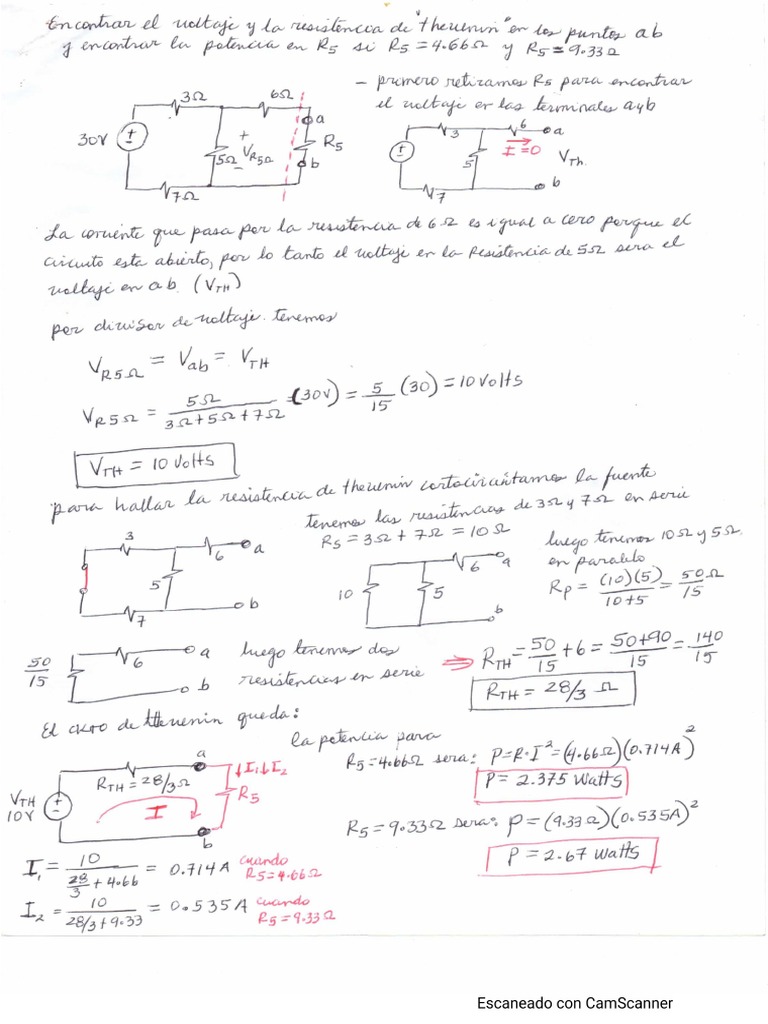 Encontrar el voltaje y la resistencia de "thevenin" en los puntos ab
y encontrar la potencia en R5 si R5 = 4.66Ω y R5 = 9.33Ω
– primero retiramos R5 para encontrar
el voltaje en las terminales a y b
3Ω
6Ω
a
30V
+
-
+
5Ω
VR5Ω
–
R5
b
7Ω
3
6
a
I=0
5
VTh.
b
7
La corriente que pasa por la resistencia de 6Ω es igual a cero porque el
circuito esta abierto, por lo tanto el voltaje en la Resistencia de 5Ω sera el
voltaje en ab. (VTH)
por divisor de voltaje. tenemos
VR5Ω = Vab = VTH
VR5Ω = 5Ω / 3Ω+5Ω+7Ω (30V) = 5/15 (30) = 10 Volts
VTH = 10 Volts
para hallar la resistencia de thevenin cortocircuitamos la fuente
tenemos las resistencias de 3Ω y 7Ω en serie
RS = 3Ω + 7Ω = 10Ω
luego tenemos 10Ω y 5Ω
en paralelo
Rp = (10)(5) / 10+5 = 50Ω / 15
3
6
a
5
b
7
10
5
6
a
b
50/15
6
a
b
luego tenemos dos
resistencias en serie
⇒ RTH = 50/15 + 6 = 50+90 / 15 = 140/15
RTH = 28/3 Ω
El ckto de thevenin queda:
la potencia para
R5=4.66Ω sera: P=R·I² = (4.66Ω)(0.714A)²
P = 2.375 Watts
R5 = 9.33Ω sera: P = (9.33Ω)(0.535A)²
P = 2.67 Watts
a
RTH = 28/3Ω
↓I1↓I2
R5
VTH
10V
+
-
I
b
I1 = 10 / 28/3 + 4.66 = 0.714A cuando
R5=4.66Ω
I2 = 10 / 28/3 + 9.33 = 0.535A cuando
R5=9.33Ω
Escaneado con CamScanner